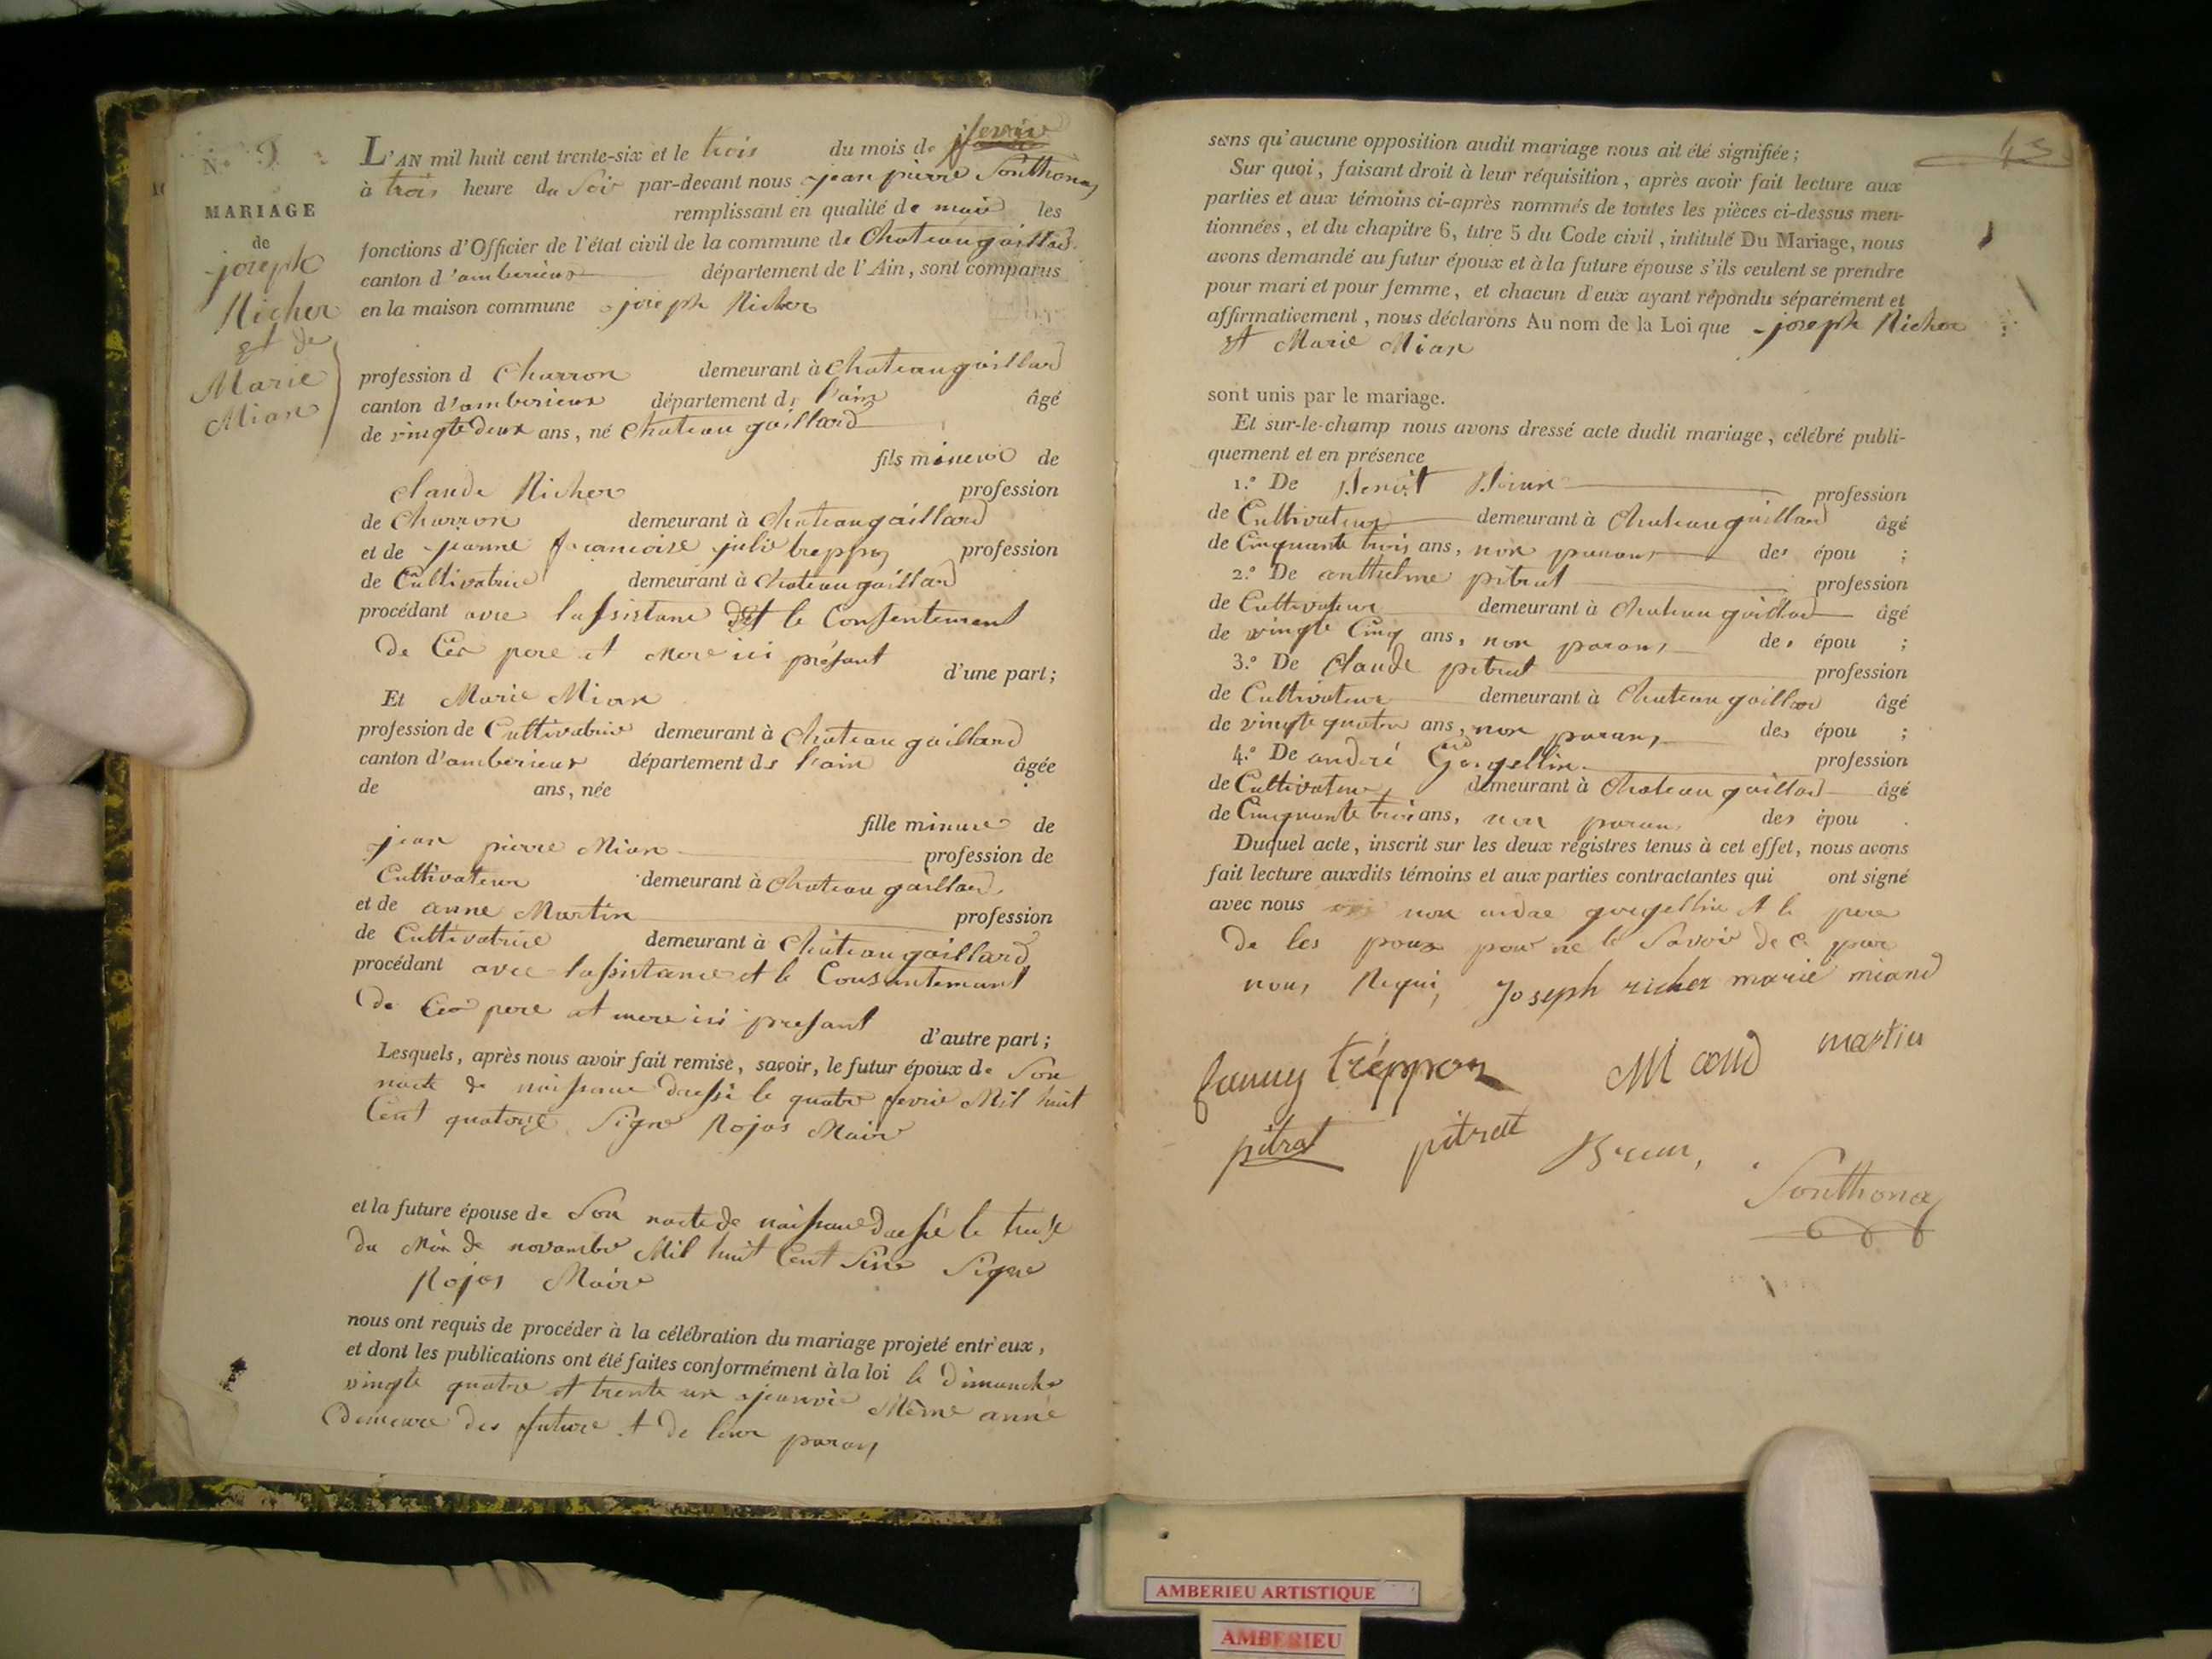 N.o 9
MARIAGE
de
joseph
Richer
et de
Marie
Mian
L'AN mil huit cent trente-six et le trois du mois de fevrie
à trois heure du Soir par-devant nous jean pierre Sonthonax
remplissant en qualité de maire les
fonctions d'Officier de l'état civil de la commune de Chateaugaillard
canton d'amberieux département de l'Ain, sont comparus
en la maison commune joseph Richer
profession d Charron demeurant à Chateaugaillard
canton d'amberieux département de l'ain âgé
de vingte deux ans, né Chateau gaillard
fils mineur de
Claude Richer profession
de Charron demeurant à Chateaugaillard
et de jeanne francoise julie profession
de Cultivatrice demeurant à Chateau gaillard
procédant avec lassistance et le Consentement
De Ces pere et Mere ici présant d'une part;
Et Marie Mian
profession de Cultivatrice demeurant à Chateau gaillard
canton d'amberieux département de l'ain âgée
de ans, née
fille minure de
jean pierre Mian profession de
Cultivateur demeurant à Chateau gaillard
et de anne Martin profession
de Cultivatrice demeurant à Chateau gaillard
procédant avec lassistance et le Consantemant
De Ces pere et mere ici presant d'autre part;
Lesquels, après nous avoir fait remise, savoir, le futur époux de Son
nacte de naissance dressé le quatre fevrie Mil huit
Cent quatorze Signe Rojas Maire
et la future épouse de Son nacte de naissance dressé le treize
du Mois de novambre Mil huit Cent Sise Signe
Rojas Maire
nous ont requis de procéder à la célébration du mariage projeté entr'eux,
et dont les publications ont été faites conformément à la loi le Dimanche
vingte quatre et trente un jeanvie Même anné
Demeure des future et de leur paran
43
sans qu'aucune opposition audit mariage nous ait été signifiée;
Sur quoi, faisant droit à leur réquisition, après avoir fait lecture aux
parties et aux témoins ci-après nommés de toutes les pièces ci-dessus men-
tionnées, et du chapitre 6, titre 5 du Code civil, intitulé Du Mariage, nous
avons demandé au futur époux et à la future épouse s'ils veulent se prendre
pour mari et pour femme, et chacun d'eux ayant répondu séparément et
affirmativement, nous déclarons Au nom de la Loi que joseph Richer
et Marie Mian
sont unis par le mariage.
Et sur-le-champ nous avons dressé acte dudit mariage, célébré publi-
quement et en présence
1.o De Benoit Brun profession
de Cultivateur demeurant à Chateau gaillard âgé
de Cinquante trois ans, non parans des épou ;
2.o De anthelme pitrat profession
de Cultivateur demeurant à Chateau gaillard âgé
de vingte Cinq ans, non parans des épou ;
3.o De Claude pitrat profession
de Cultivateur demeurant à Chateau gaillard âgé
de vingte quatre ans, non parans des épou ;
4.o De andré Gorgellin profession
de Cultivateur demeurant à Chateau gaillard âgé
de Cinquante trois ans, non paran des épou .
Duquel acte, inscrit sur les deux registres tenus à cet effet, nous avons
fait lecture auxdits témoins et aux parties contractantes qui ont signé
avec nous non andre gorgellin et le pere
De les poux pour ne le Savoir de ce par
nous Requi, Joseph richer marie miand
fanny tréppoz Miand martin
pitrat pitrat Brun,
Sonthonax
AMBERIEU ARTISTIQUE
AMBERIEU